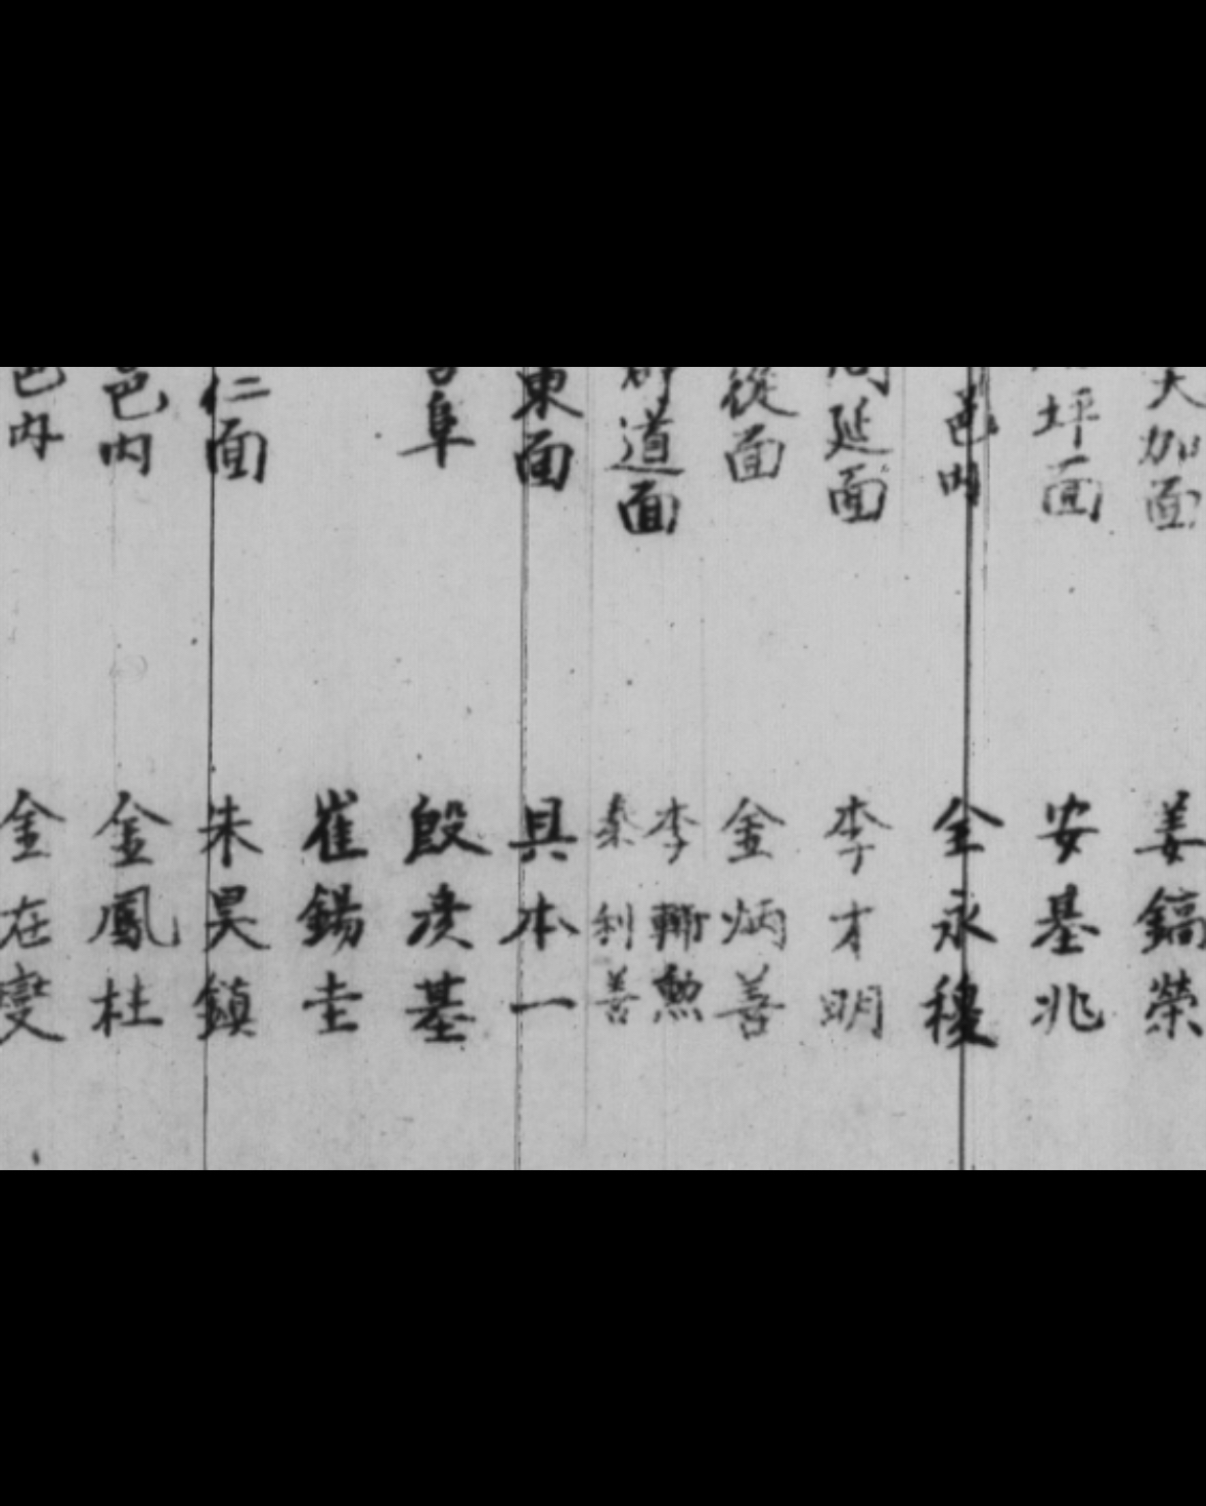 大加面 姜鎬榮
坪面 安基兆
邑內 全永稷
延面 李才明
從面 金炳善
道面 李勲
秦利善
東面 具本一
阜 殷彦基
崔錫圭
仁面 朱昊鎮
邑內 金鳳杜
邑內 金在燮